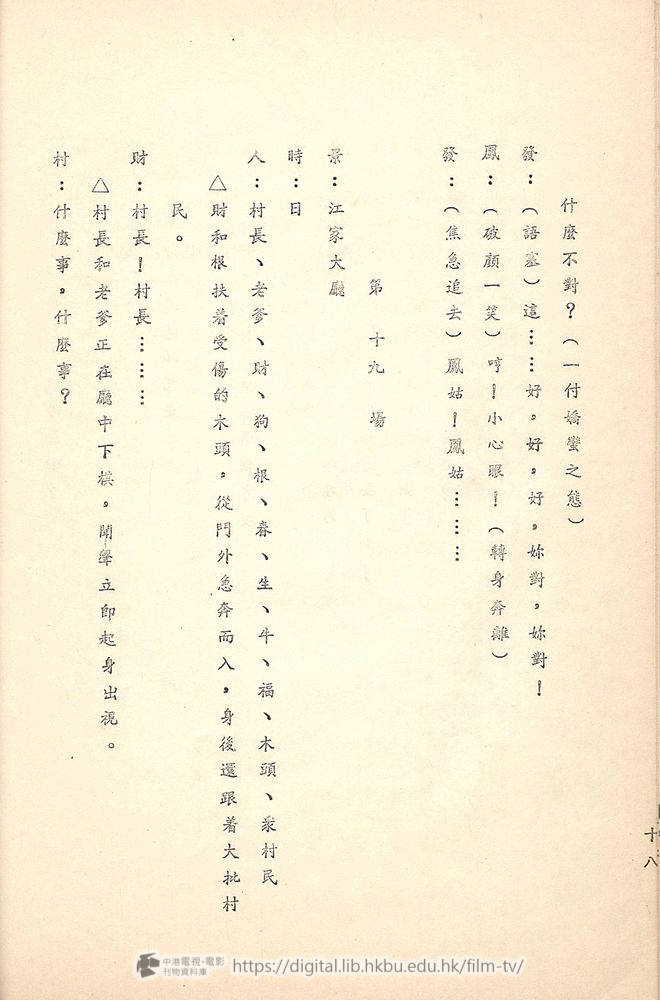 什麼不對？（一付嬌蠻之態）
發：（語塞）這……好，好，好，妳對，妳對！
鳳：（破顏一笑）哼！小心眼！（轉身奔離）
發：（焦急追去）鳳姑！鳳姑………
第十九場
景：江家大廳
時：日
人：村長、老爹、財、狗、根、春、生、牛、福、木頭、衆村民
△財和根扶着受傷的木頭，從門外急奔而入，身後還跟着大批村
民。
財：村長！村長………
△村長和老爹正在廳中下棋，聞聲立即起身出視。
村：什麼事，什麼事？
十八
中港電視·電影
刊物資料庫
https://digital.lib.hkbu.edu.hk/film-tv/